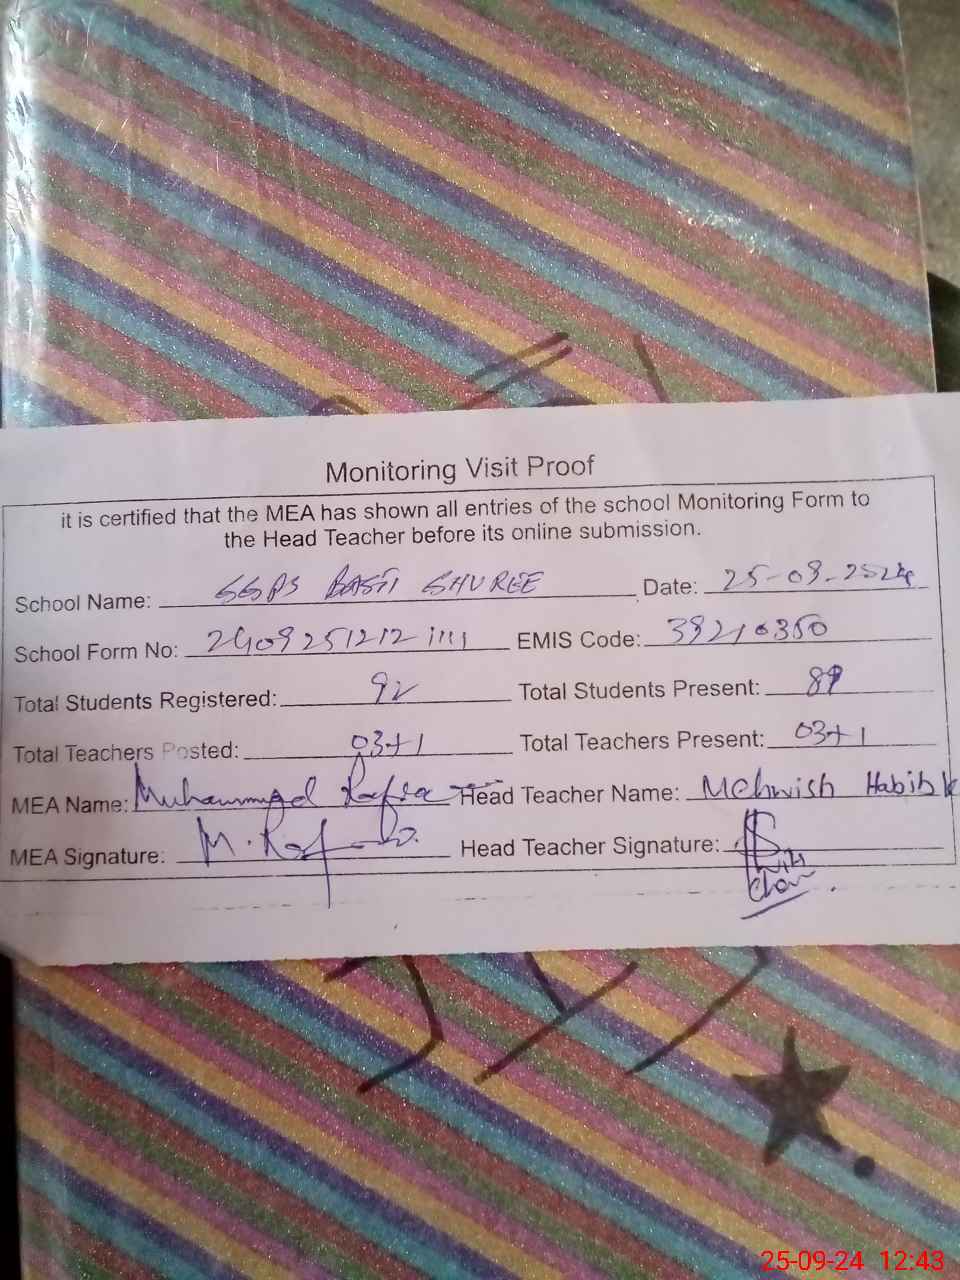 Monitoring Visit Proof
it is certified that the MEA has shown all entries of the school Monitoring Form to
the Head Teacher before its online submission.
School Name: BASTI SHUREE Date: 25-09-2024
School Form No: EMIS Code: 39210350
Total Students Registered: 92 Total Students Present:
Total Teachers Posted: 03+1 Total Teachers Present: 03+1
MEA Name: Muhammad Head Teacher Name: Mehwish Habib
MEA Signature: Head Teacher Signature:
25-09-24 12:43